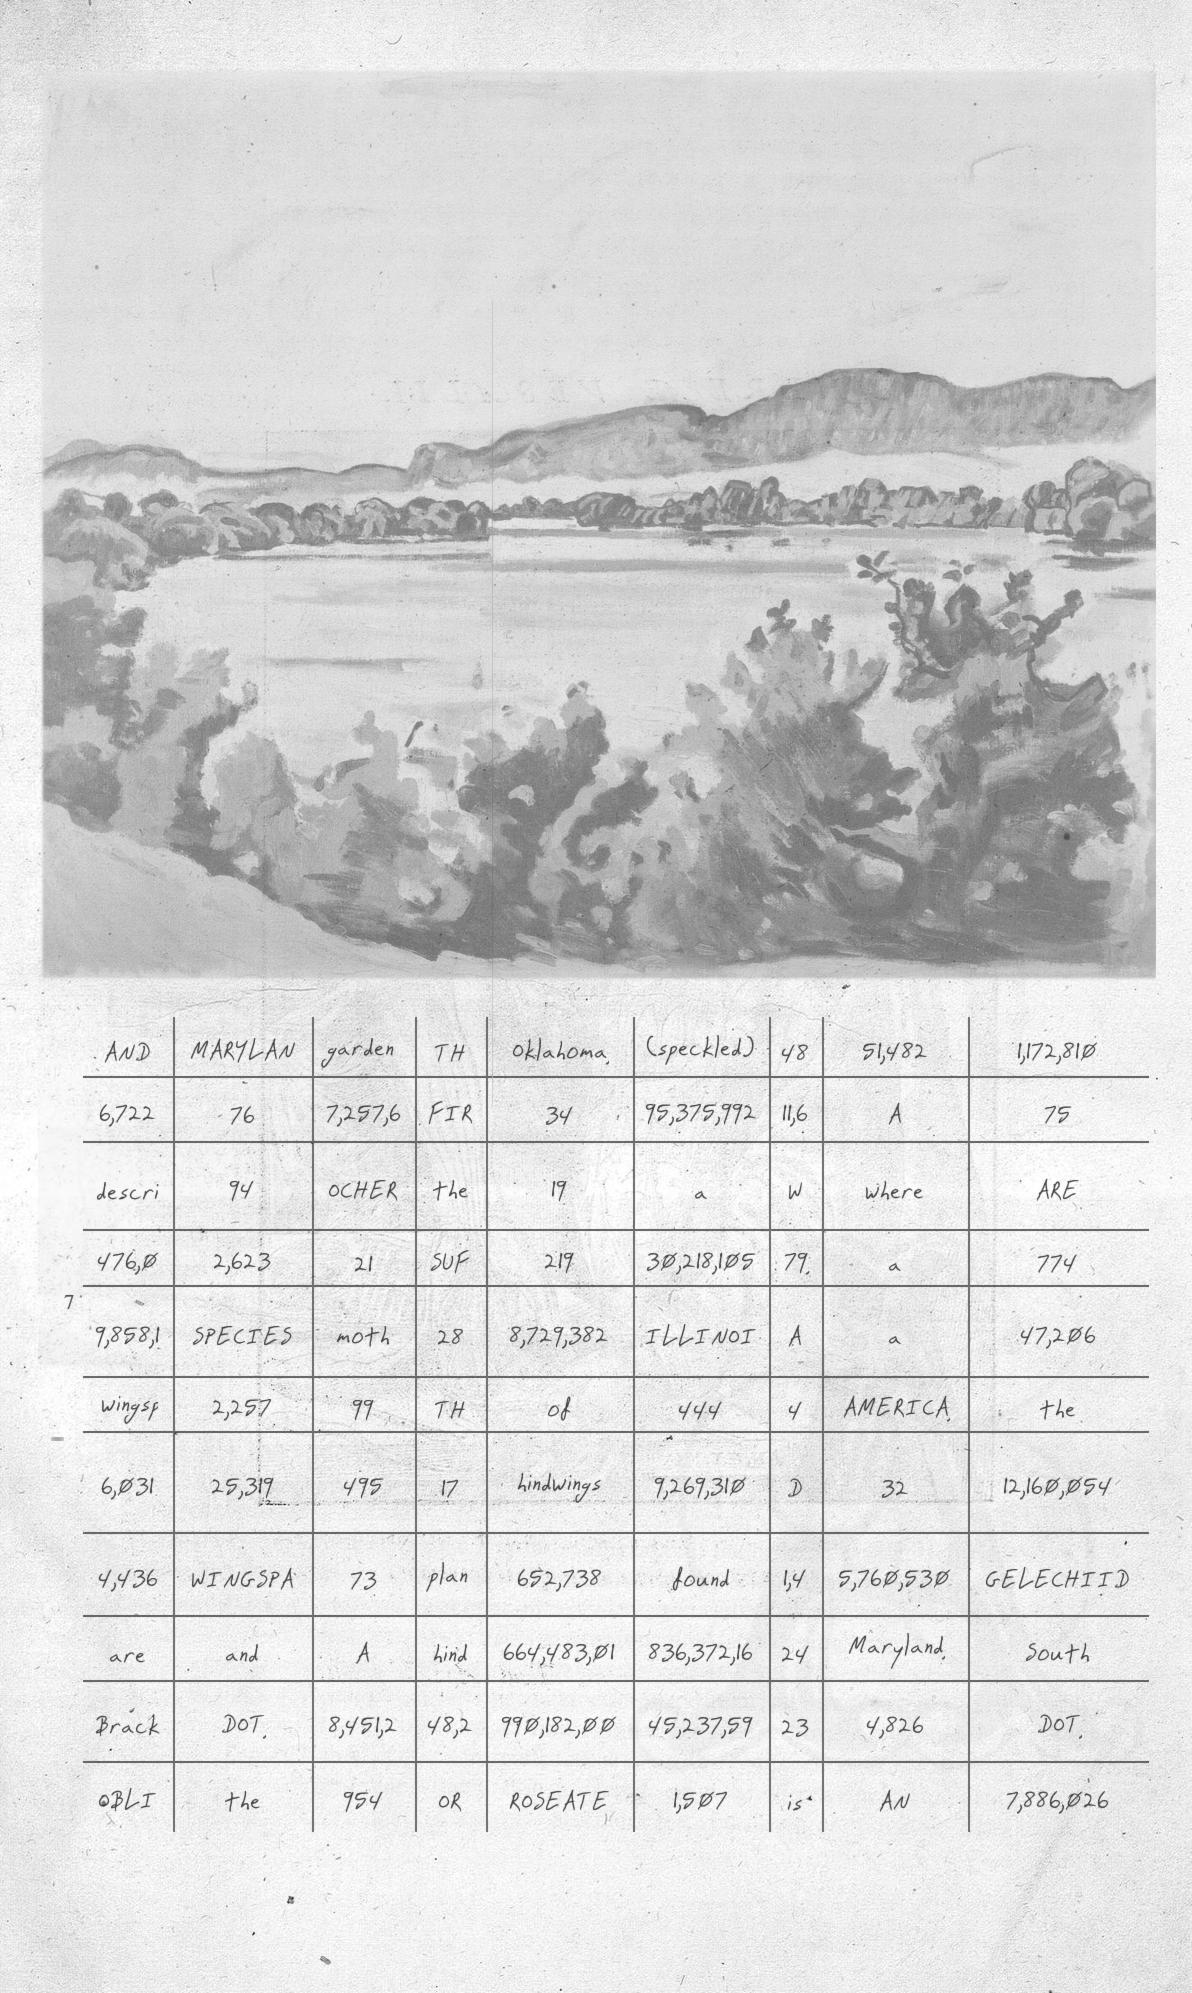 AND MARYLAN garden TH Oklahoma, (speckled) 48 51,482 1,172,810
6,722 76 7,257,6 FIR 34 95,375,992 11,6 A 75
descri 94 OCHER the 19 a W where ARE
476,0 2,623 21 SUF 219 30,218,105 79, a 774
7
9,858,1 SPECIES moth 28 8,729,382 ILLINOI A a 47,206
wingsp 2,257 99 TH of 444 4 AMERICA, the
6,031 25,319 495 17 hindwings 9,269,310 D 32 12,160,054
4,436 WINGSPA 73 plan 652,738 found 1,4 5,760,530 GELECHIID
are and A hind 664,483,01 836,372,16 24 Maryland, South
Brack DOT. 8,451,2 48,2 990,182,00 45,237,59 23 4,826 DOT.
OBLI the 954 OR ROSEATE 1,507 is AN 7,886,026